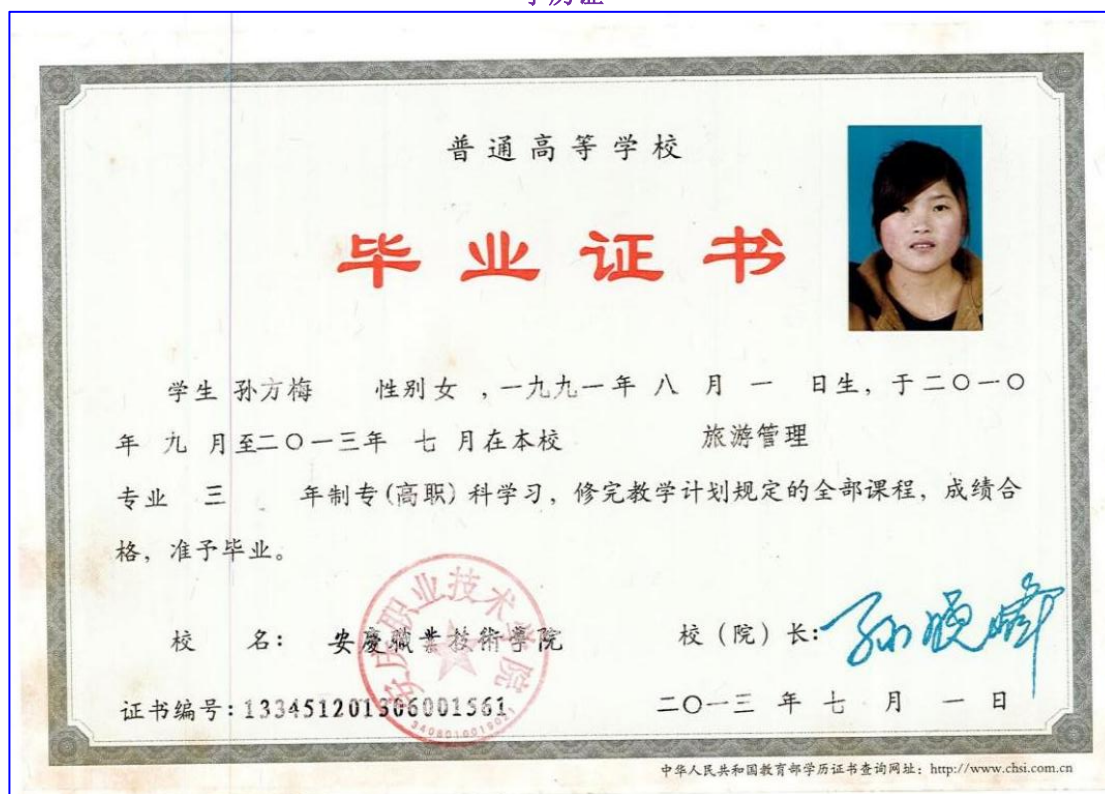 学历证
普通高等学校
毕业证书
学生 孙方梅 性别女 ,一九九一年 八 月 一 日生, 于二〇一〇
年 九 月至二〇一三年 七 月在本校 旅游管理
专业 三 年制专(高职)科学习, 修完教学计划规定的全部课程, 成绩合
格, 准予毕业。
安庆职业技术学院
校 名: 安慶職業技術學院 校(院)长:
证书编号:133451201306001561 二〇一三 年 七 月 一 日
中华人民共和国教育部学历证书查询网址: http://www.chsi.com.cn